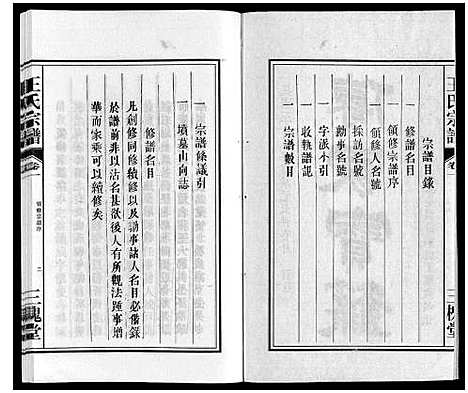 王氏宗譜
卷
三槐堂
宗譜目錄
一 領修宗譜序
一 領修人名號
一 採訪名號
一 勸事名號
一 字派小引
一 收執譜記
一 宗譜數目
一 宗譜條議引
一 墳墓山向誌
修譜名目
凡創修同修續修以及勸事諸人名目必備錄
於譜前非以沽名甚欲後人有所觀法踵事增
華而家乘可以續修矣
王氏宗譜
卷
領修宗譜序
二
三槐堂